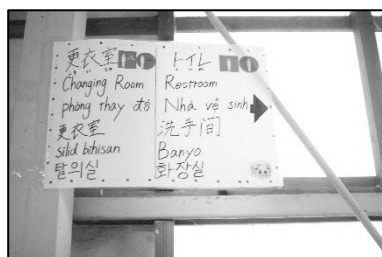 更衣室
Changing Room
phòng thay đồ
更衣室
silid bihisan
탈의실
トイレ
Restroom
Nhà vệ sinh
洗手间
Banyo
화장실